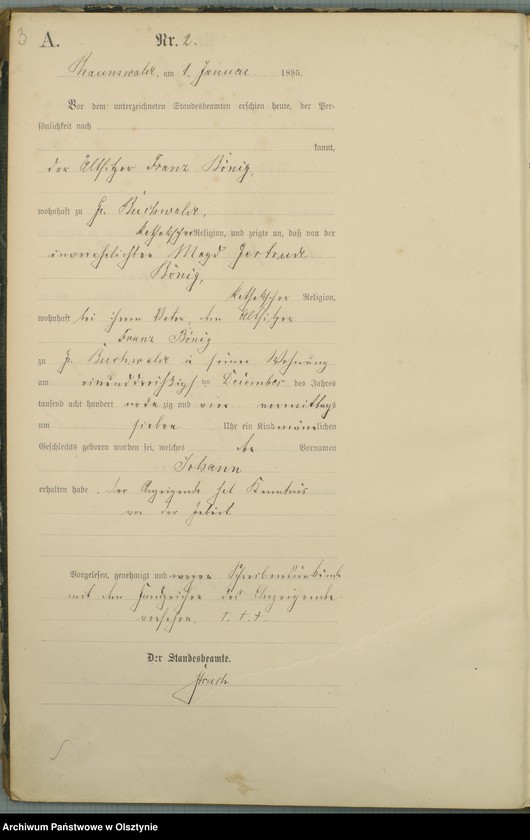 3
A.
Nr. 2.
Braunswalde, am 1. Januar 1895.
Vor dem unterzeichneten Standesbeamten erschien heute, der Per-
sönlichkeit nach
kannt,
der Altsitzer Franz König,
wohnhaft zu Gr. Buchwalde,
katholischer Religion, und zeigte an, daß von der
unverehelichten Magd Gertrude
König,
katholischer Religion,
wohnhaft bei ihrem Vater, dem Altsitzer
Franz König
zu Gr. Buchwalde in seiner Wohnung
am einunddreißigsten Dezember des Jahres
tausend acht hundert neunzig und vier vormittags
um sieben Uhr ein Kind männlichen
Geschlechts geboren worden sei, welches die Vornamen
Johann
erhalten habe. Der Anzeigende hat Kenntnis
von der Geburt.
Vorgelesen, genehmigt und wegen Schreibensunkunde
mit dem Handzeichen des Anzeigenden
versehen. † † †.
Der Standesbeamte.
Archiwum Państwowe w Olsztynie